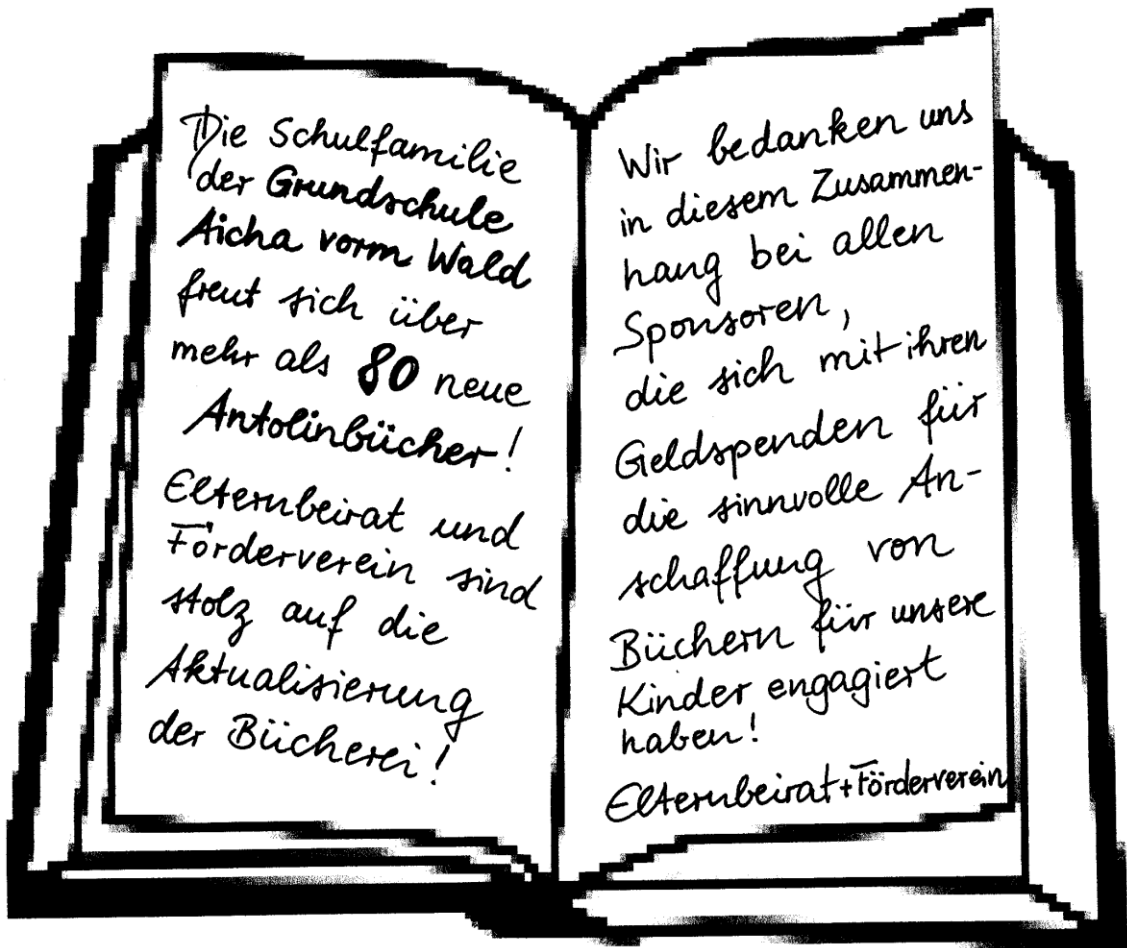 Die Schulfamilie
der Grundschule
Aicha vorm Wald
freut sich über
mehr als 80 neue
Antolinbücher!
Elternbeirat und
Förderverein sind
stolz auf die
Aktualisierung
der Bücherei!
Wir bedanken uns
in diesem Zusammen-
hang bei allen
Sponsoren,
die sich mit ihren
Geldspenden für
die sinnvolle An-
schaffung von
Büchern für unsere
Kinder engagiert
haben!
Elternbeirat+Förderverein